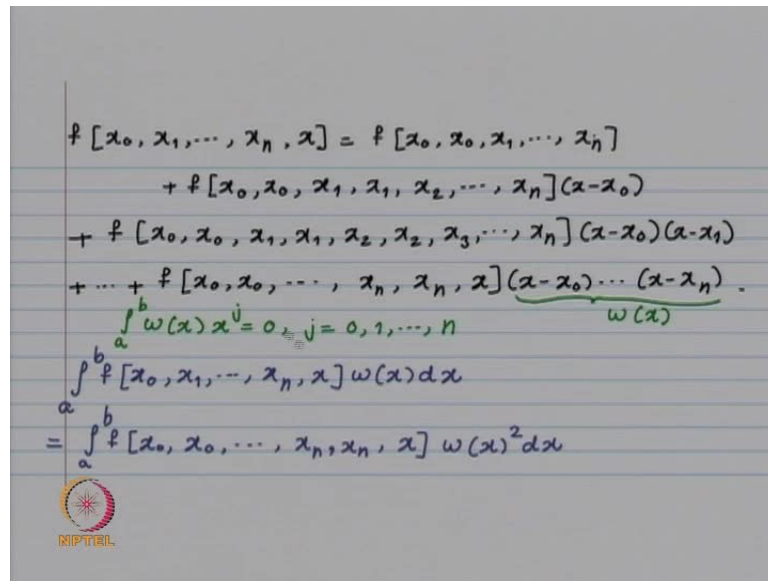 f [x₀, x₁, ..., xₙ, x] = f [x₀, x₀, x₁, ..., xₙ]
+ f [x₀, x₀, x₁, x₁, x₂, ..., xₙ](x-x₀)
+ f [x₀, x₀, x₁, x₁, x₂, x₂, x₃, ..., xₙ](x-x₀)(x-x₁)
+ ... + f [x₀, x₀, ..., xₙ, xₙ, x](x-x₀)...(x-xₙ).
ω(x)
∫ₐᵇ ω(x) xʲ = 0, j = 0, 1, ..., n
∫ₐᵇ f [x₀, x₁, ..., xₙ, x] ω(x) dx
= ∫ₐᵇ f [x₀, x₀, ..., xₙ, xₙ, x] ω(x)² dx
NPTEL